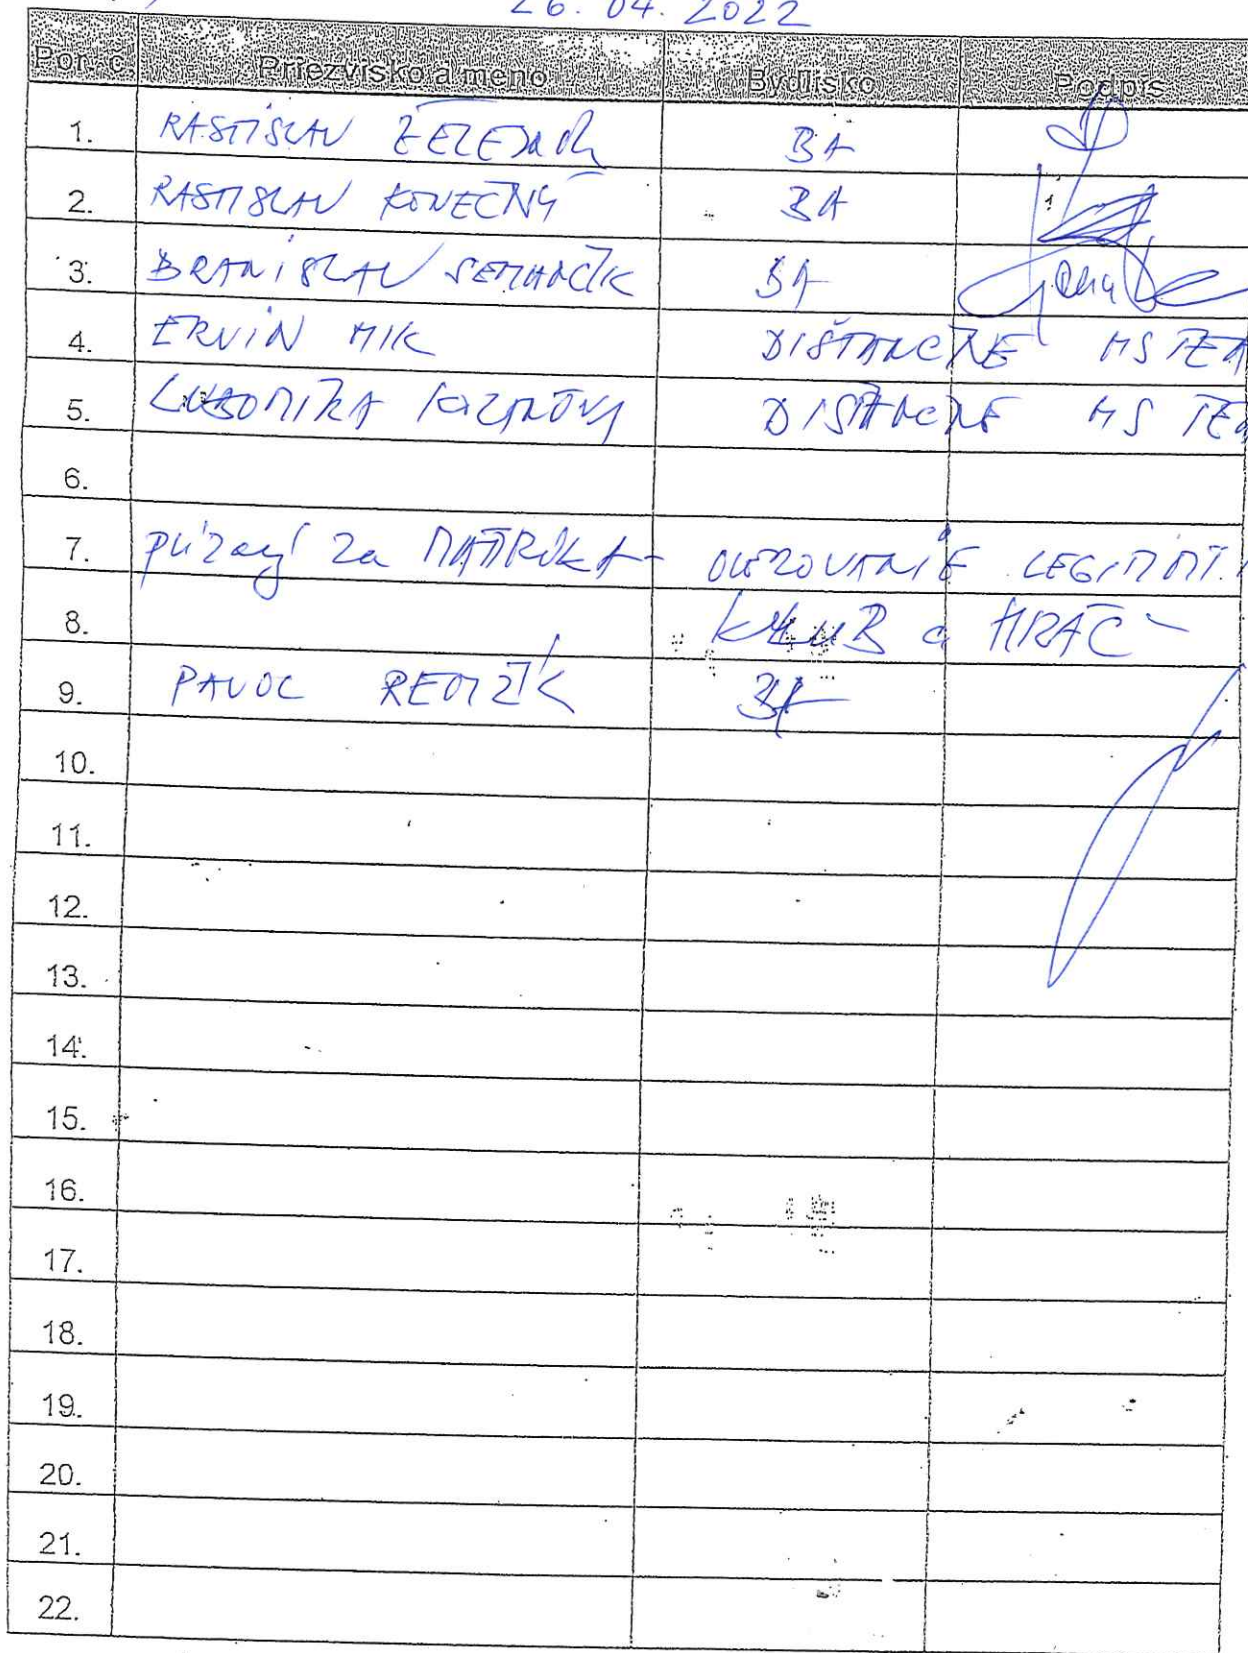 26. 04. 2022
Por. č Priezvisko a meno Bydlisko Podpis
1. RASTISLAV BA
2. RASTISLAV KONEČNÝ BA
3. BRANISLAV SEMANČÍK BA
4. ERVIN MIK DIŠTANČNE MS TEA
5. ĽUBOMÍRA DIŠTANČNE MS TEA
6.
7. prizvaný za MATRIKA - OVEROVANIE LEGITIMT.
8. KLUB a HRÁČ
9. PAVOL REMŽÍK BA
10.
11.
12.
13.
14.
15.
16.
17.
18.
19.
20.
21.
22.